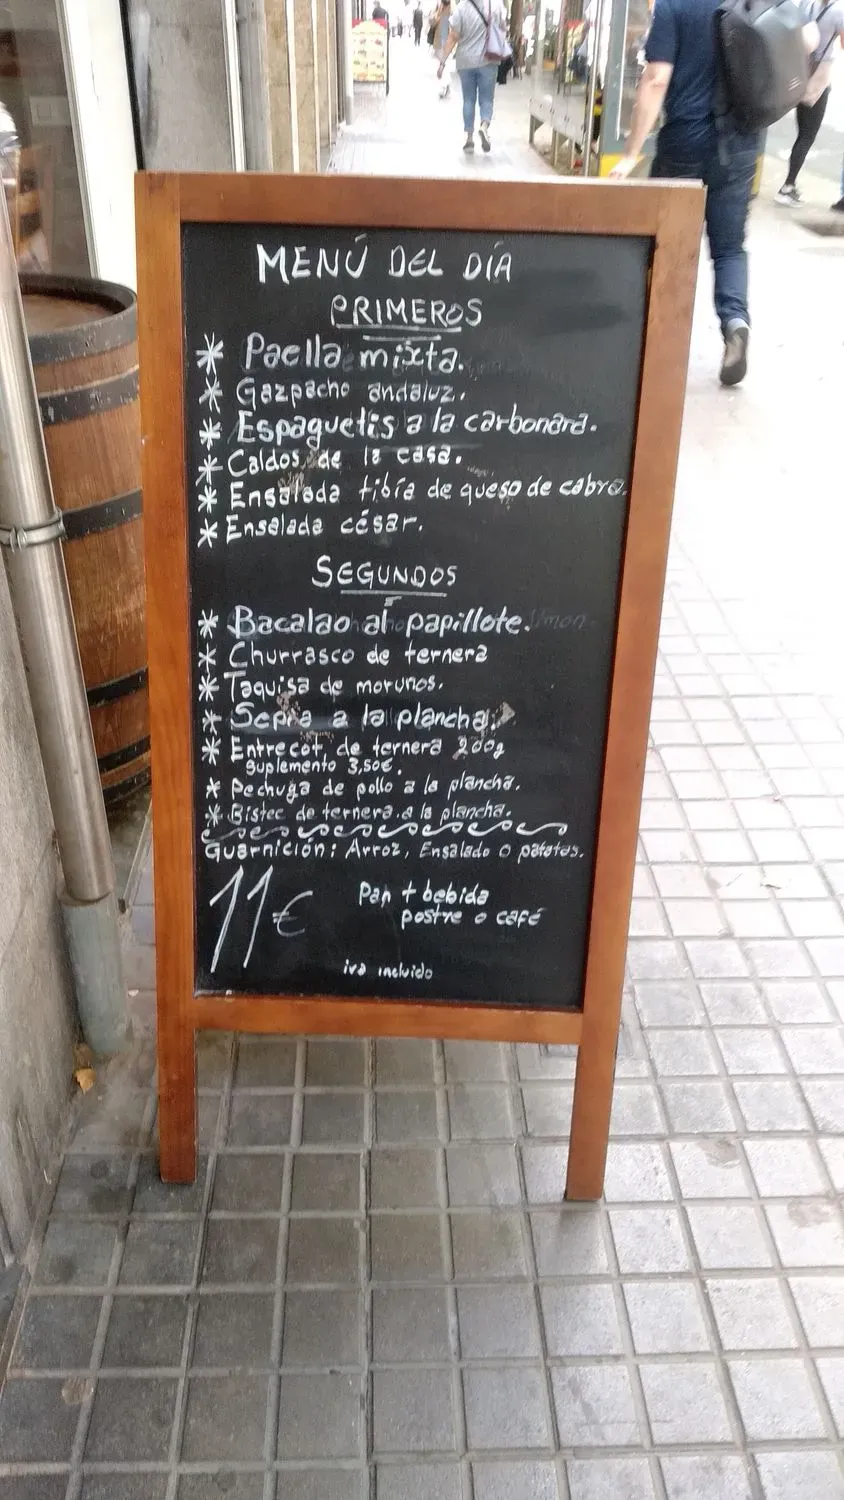 MENÚ DEL DÍA
PRIMEROS
* Paella mixta.
* Gazpacho andaluz.
* Espaguetis a la carbonara.
* Caldos de la casa.
* Ensalada tibia de queso de cabra.
* Ensalada césar.
SEGUNDOS
* Bacalao al papillote.
* Churrasco de ternera
* Taquisa de morunos.
* Sepia a la plancha.
* Entrecot de ternera 200g
suplemento 3,50€.
* Pechuga de pollo a la plancha.
* Bistec de ternera a la plancha.
Guarnición: Arroz, Ensalada o patatas.
11€ Pan + bebida
postre o café
iva incluido